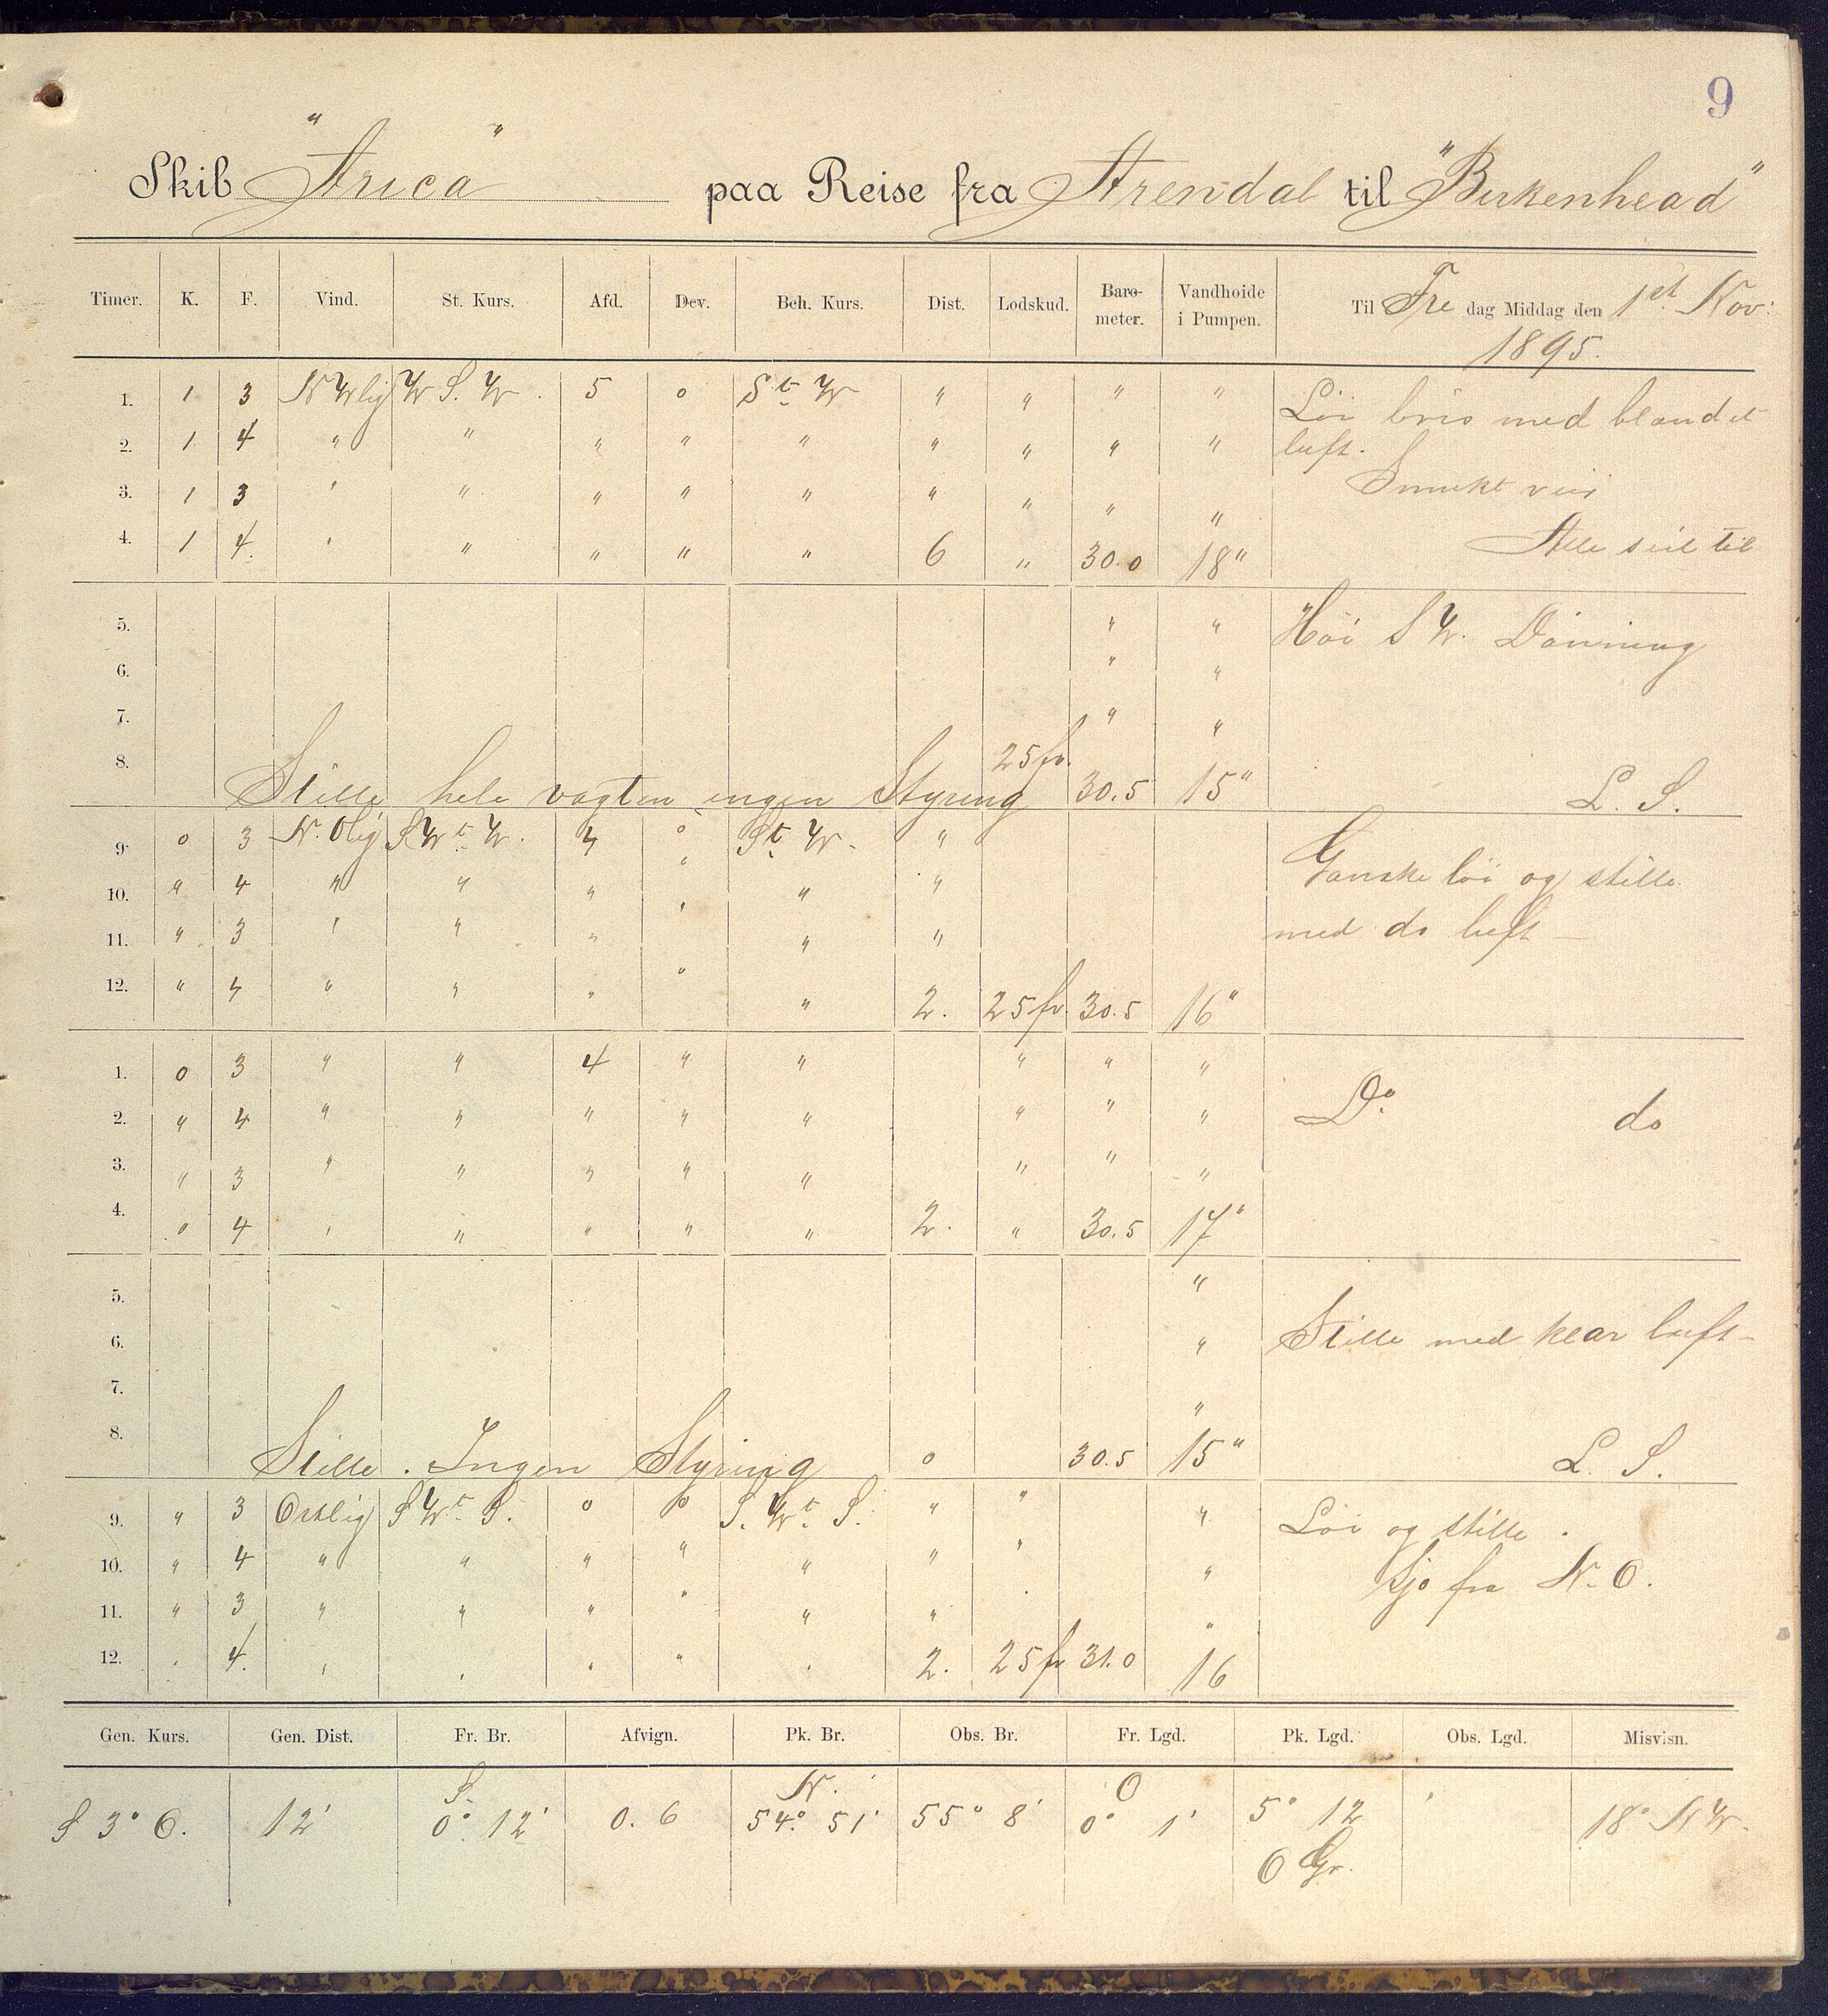 9
Skib "Arica" paa Reise fra Arendal til "Birkenhead"
Timer. K. F. Vind. St. Kurs. Afd. Dev. Beh. Kurs. Dist. Lodskud. Baro- meter. Vandhoide i Pumpen. Til Fredag Middag den 1st Nov: 1895.
1. 1 3 NWlig W S. W. 5 0 S t W " " " " Löi bris med blandet
2. 1 4 " " " " " " " " " luft.
3. 1 3 " " " " " " " " " Smukt veir
4. 1 4. " " " " " 6 " 30.0 18" Alle seil til
5. " " Höi S W. Dönning
6. " "
7. " "
8. Stille hele vagten ingen Styring 25 fv. 30.5 15" L. S.
9. 0 3 N. Olig S W t W. 4 0 S t W. "
10. " 4 " " " " " " Ganske löi og stille
11. " 3 " " " " " " med do luft
12. " 4 " " " " " 2. 25 fv. 30.5 16"
1. 0 3 " " 4 " " " " "
2. " 4 " " " " " " " " Do do
3. " 3 " " " " " " " "
4. " 4 " " " " " 2. " 30.5 17"
5. "
6. " Stille med klar luft
7. "
8. Stille. Ingen Styring 0 30.5 15" L. S.
9. " 3 Ostlig S W t S. 0 0 S. W t S. " " " Löi og stille.
10. " 4 " " " " " " " " Sjö fra N. O.
11. " 3 " " " " " " " "
12. " 4. " " " " " 2. 25 fv 31.0 16
Gen. Kurs. Gen. Dist. Fr. Br. Afvign. Pk. Br. Obs. Br. Fr. Lgd. Pk. Lgd. Obs. Lgd. Misvisn.
S. N. O
S 3° O. 12' 0° 12' 0. 6 54° 51' 55° 8' 0° 1' 5° 12 ' 18° N W.
O Gr.